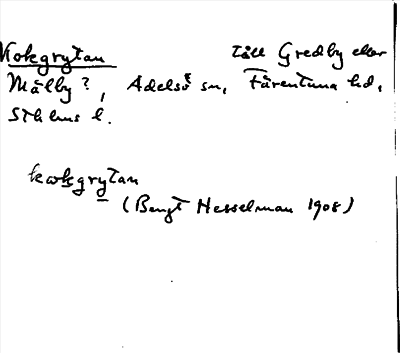 Kokgrytan till Gredby eller
Mälby?, Adelsö sn, Färentuna hd,
Sthlms l.
kokgrytan
(Bengt Hesselman 1908)